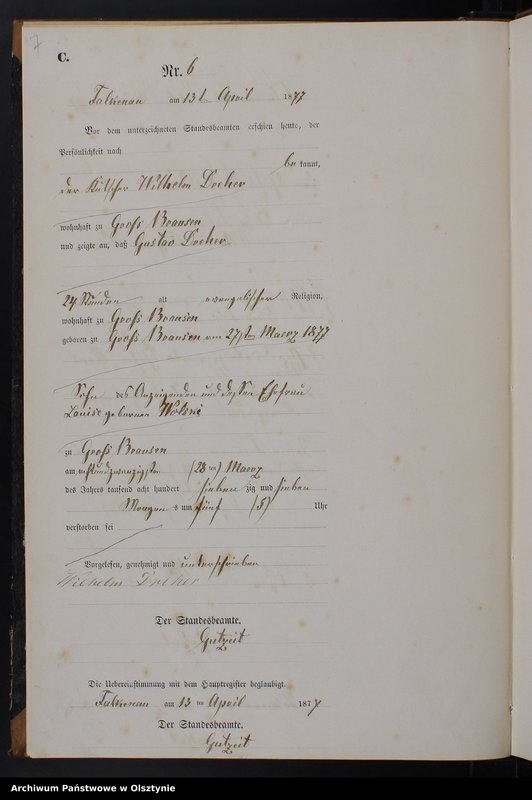 7
C.
Nr. 6
Falkenau am 13ten April 1877
Vor dem unterzeichneten Standesbeamten erschien heute, der
Persönlichkeit nach
be kannt,
der Kutscher Wilhelm Dreher
wohnhaft zu Groß Bransen
und zeigte an, daß Gustav Dreher
24 Stunden alt evangelischer Religion,
wohnhaft zu Groß Bransen
geboren zu Groß Bransen am 27sten Maerz 1877
Sohn des Anzeigenden und dessen Ehefrau
Louise geborenen
zu Groß Bransen
am achtundzwanzigsten (28ten) Maerz
des Jahres tausend acht hundert sieben zig und sieben
Morgens um fünf (5) Uhr
verstorben sei
Vorgelesen, genehmigt und unterschrieben
Wilhelm Dreher
Der Standesbeamte.
Gutzeit
Die Uebereinstimmung mit dem Hauptregister beglaubigt.
Falkenau am 13 ten April 1877
Der Standesbeamte.
Gutzeit
Archiwum Państwowe w Olsztynie